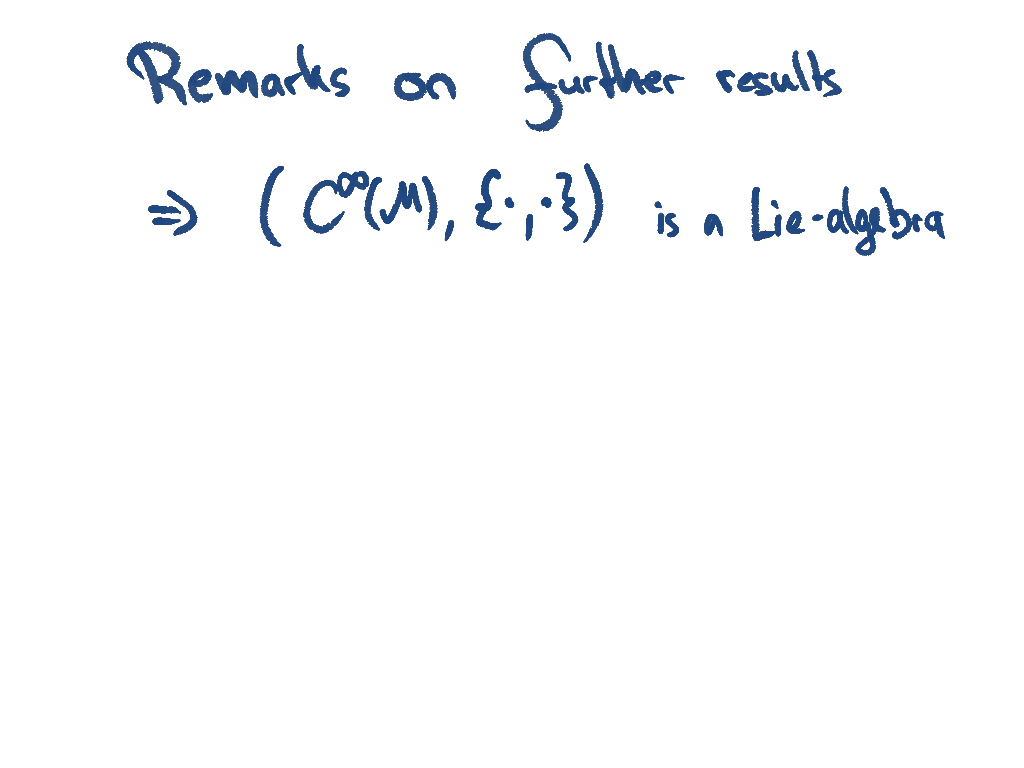 Remarks on further results
⇒ ( C^∞(M), {·,·} ) is a Lie-algebra